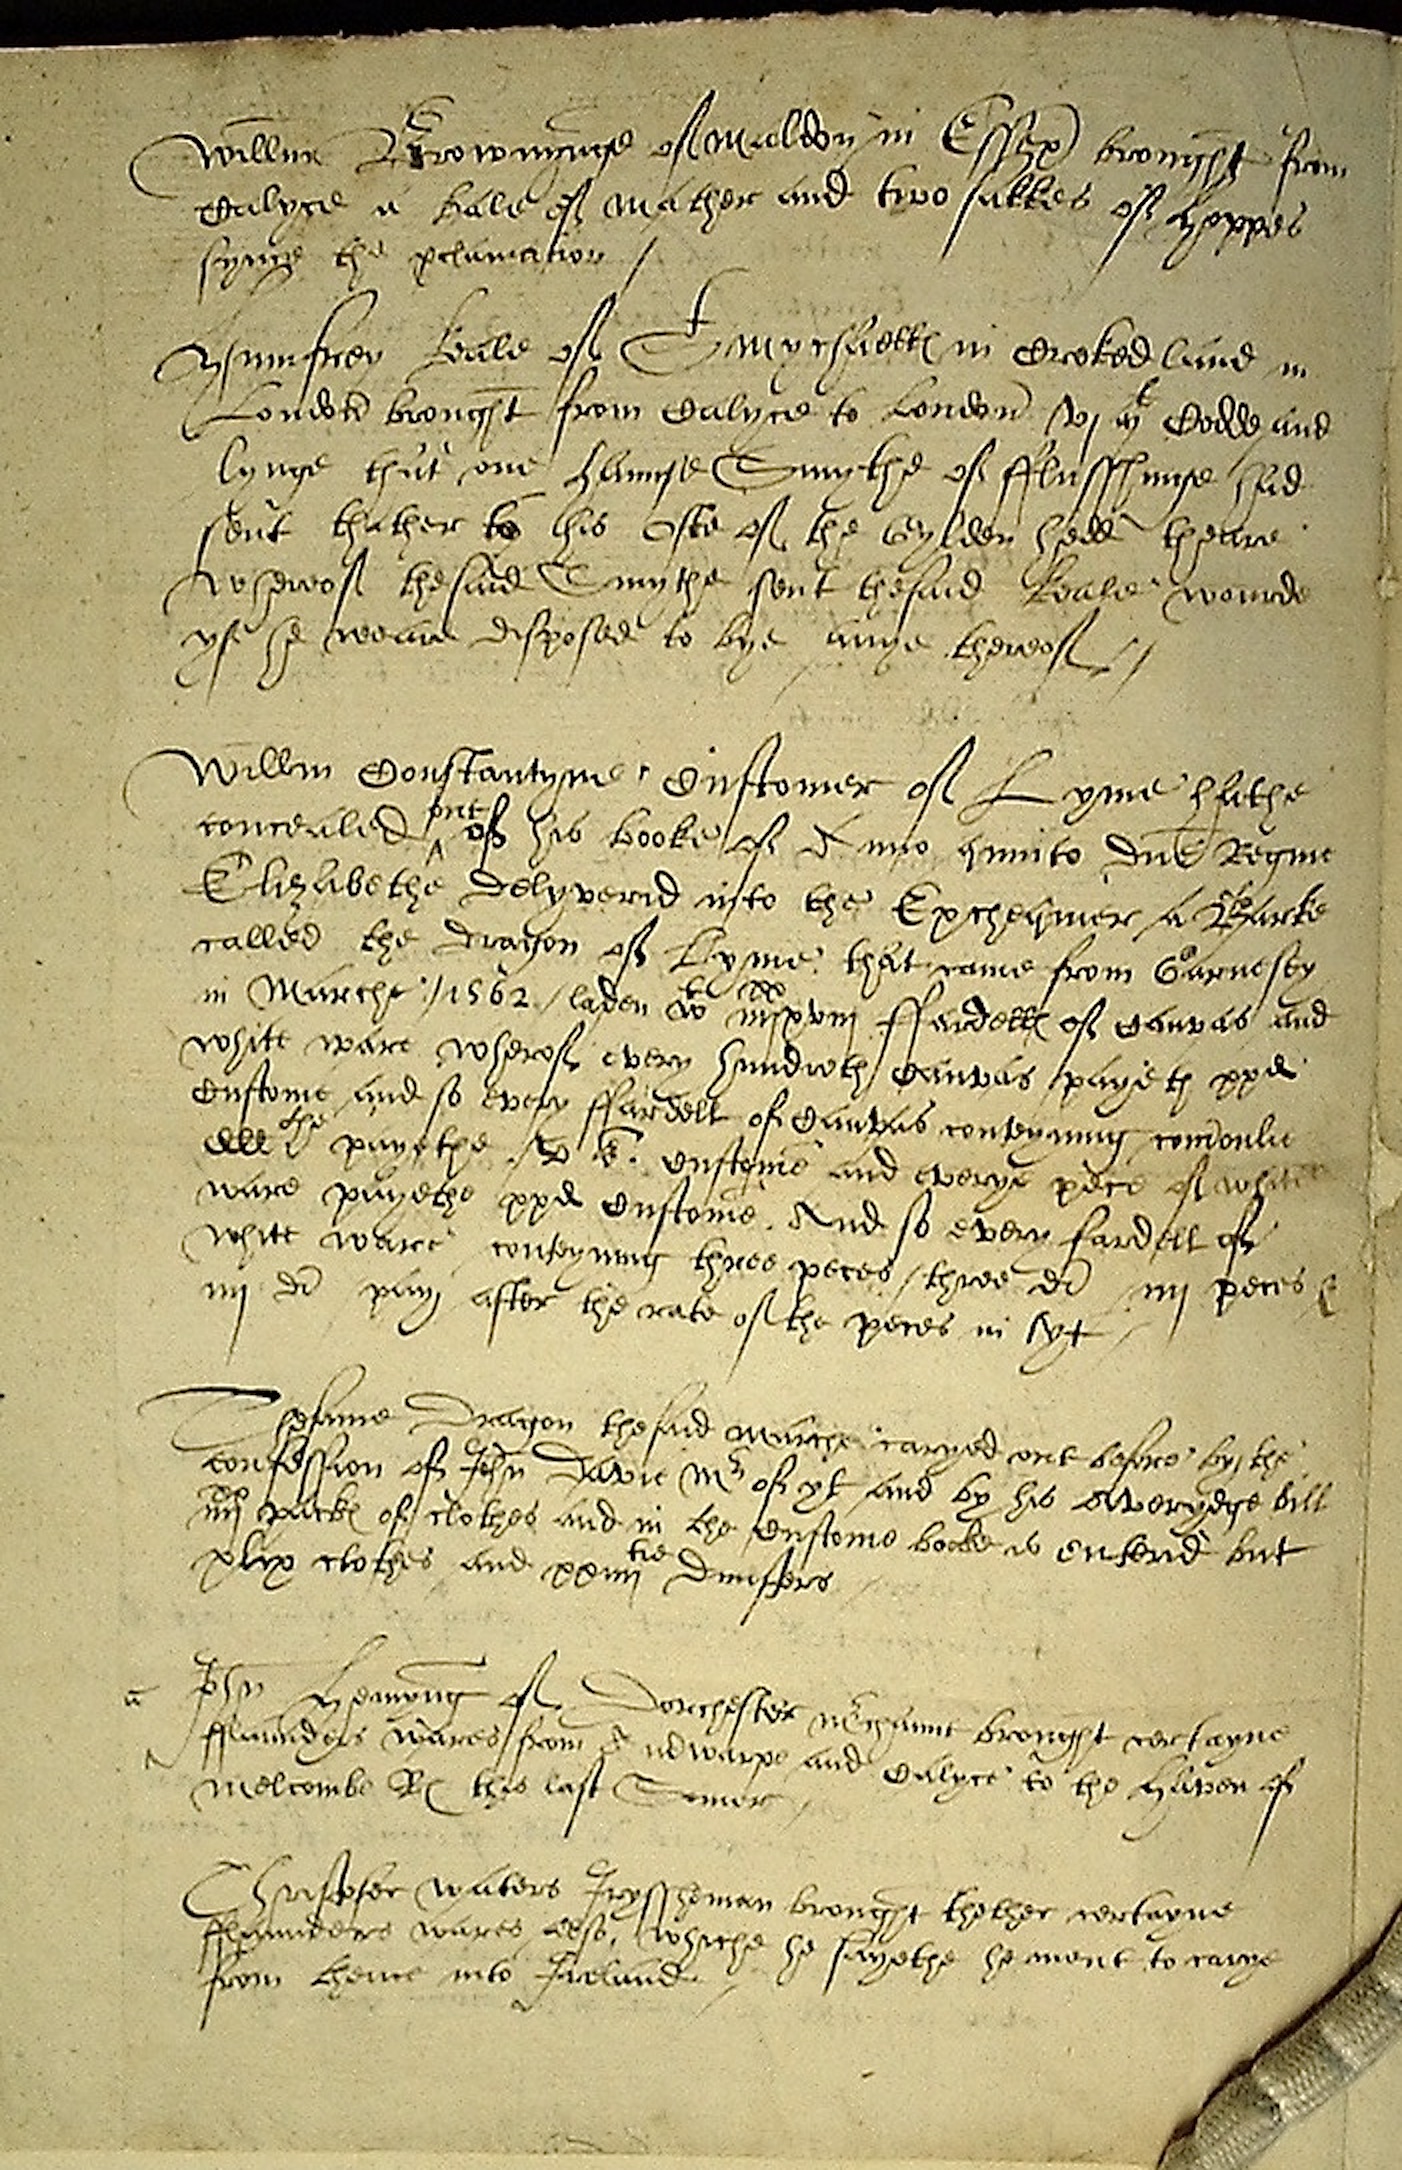 Willm Brownynge of Maldon in Essex brought from
Calyce a bale of Mather and two sakkes of Hoppes
syns the pclamation /
Humfrey Keale of St Mychaells in Croked land in
London brought from Calyce to London vj C Codde and
lynge that one Haunse Smythe of fflusshinge had
sent thether to his Oste of the Gylden hedd theare
Wherof thesaid Smythe sent thesaid Keale wourde
yf he weare disposed to bye anye therof //
Willm Constantyne Customer of Lyme hathe
concealed out of his booke of Anno quinto Dne Regine
Elizabethe delyverid into the Exchequier a Barke
called the Dragon of Lyme that came from Garnesey
in Marche / 1562 / laden wt iiijxx xviij ffardells of Canvas and
white ware wherof every hundreth Canvas payeth xxd
Custome and so every ffardell of Canvas conteyning comonlie
CCC the payethe v s. Custome and everye pece of white
ware payethe xxd Custome. And so every fardell of
white ware conteyning three peces / three di iiij peces &
iiij di pay after the rate of the peces in yt /
Thesame Dragon thesaid Marche caryed out before by the
confession of John Davie Mr of yt and by his averydge bill
iiijxx packs of clothes and in the Custome booke is entrid but
xlix clothes and xxiiijtie Dunsters
a John Hemyng of Dorchester mrchaunt brought certayne
fflaunders wares from Andwarpe and Calyce to the Haven of
Melcombe Rs this last Somer /
Christofer Waters Iryssheman brought thether certayne
fflaunders wares also, whiche he sayethe he ment to carye
from thence into Ireland /